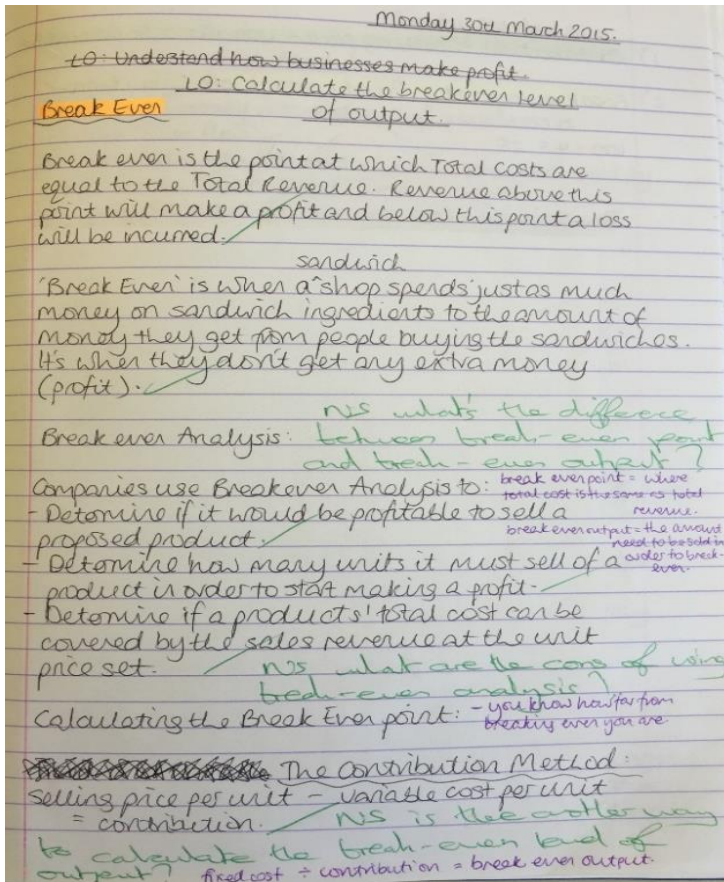 Monday 30th March 2015.
LO: Understand how businesses make profit.
LO: Calculate the breakeven level
Break Even
of output.
Break even is the point at which Total costs are
equal to the Total Revenue. Revenue above this
point will make a profit and below this point a loss
will be incurred.
sandwich
'Break Even' is when a ^ shop spends just as much
money on sandwich ingredients to the amount of
money they get from people buying the sandwiches.
It's when they don't get any extra money
(profit).
N/S what's the difference
Break even Analysis: between break-even point
and break-even output?
Companies use Breakeven Analysis to: break even point = where
total cost is the same as total
- Determine if it would be profitable to sell a revenue.
proposed product. break even output = the amount
need to be sold in
- Determine how many units it must sell of a order to break-
even.
product in order to start making a profit.
- Determine if a products' total cost can be
covered by the sales revenue at the unit
price set. N/S what are the cons of using
break-even analysis?
Calculating the Break Even point: - you know how far from
breaking even you are
The Contribution Method:
Selling price per unit - variable cost per unit
= contribution. N/S is there another way
to calculate the break-even level of
output? fixed cost ÷ contribution = break even output.